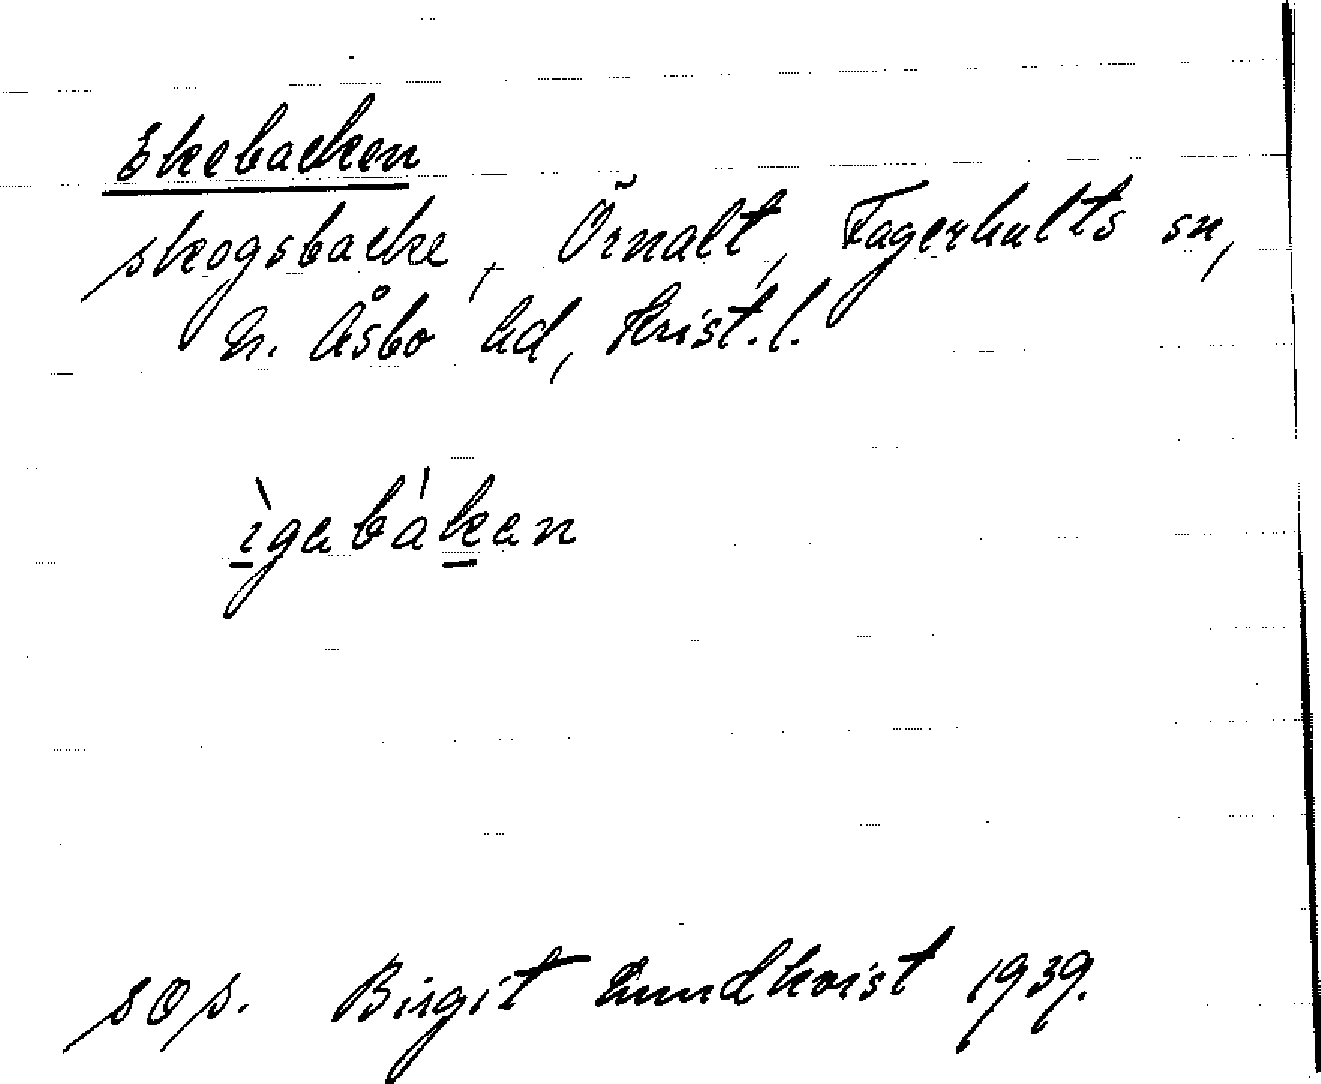 Ekebacken
skogsbacke, Örnalt, Fagerhults sn,
N. Åsbo hd, Krist.l.
ìgabákan
sos. Birgit Lundkvist 1939.